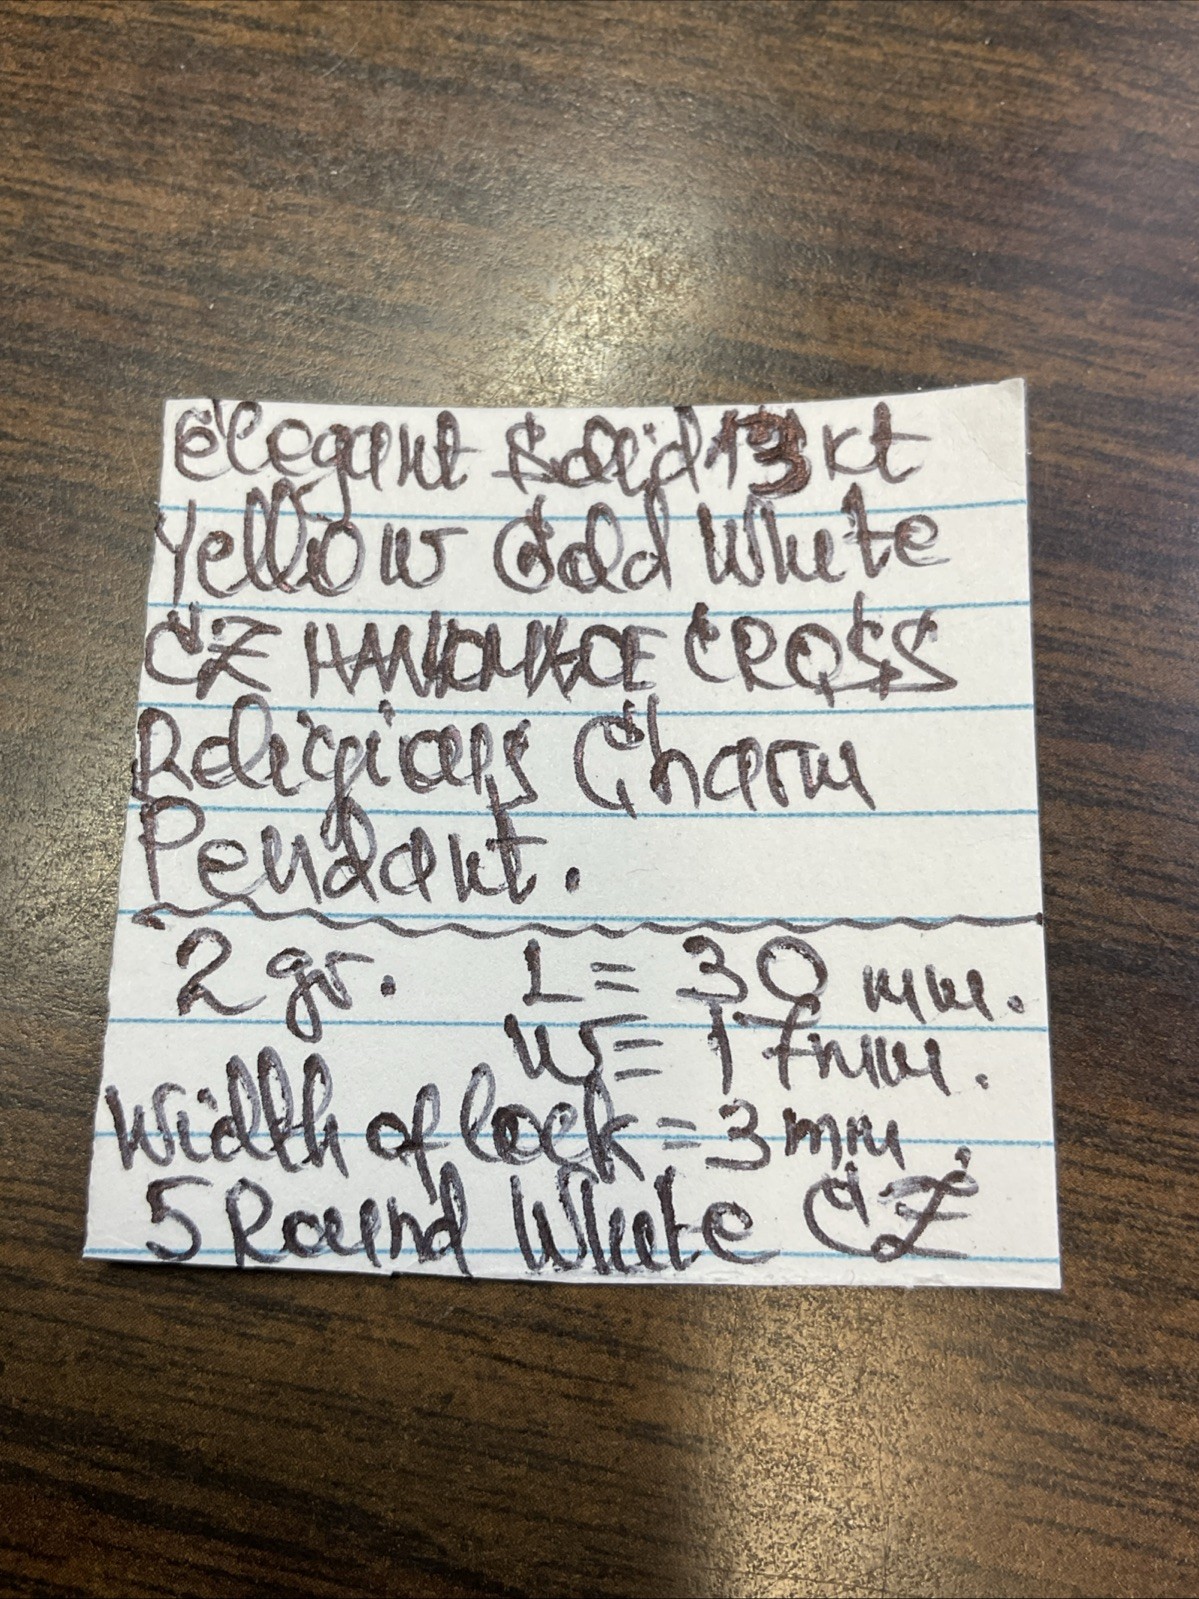 Elegant Solid 13 kt
Yellow Gold White
CZ HANDMADE CROSS
Religious Charm
Pendant.
2 gr. L = 30 mm.
W = 17mm.
Width of lock = 3mm.
5 Round White CZ